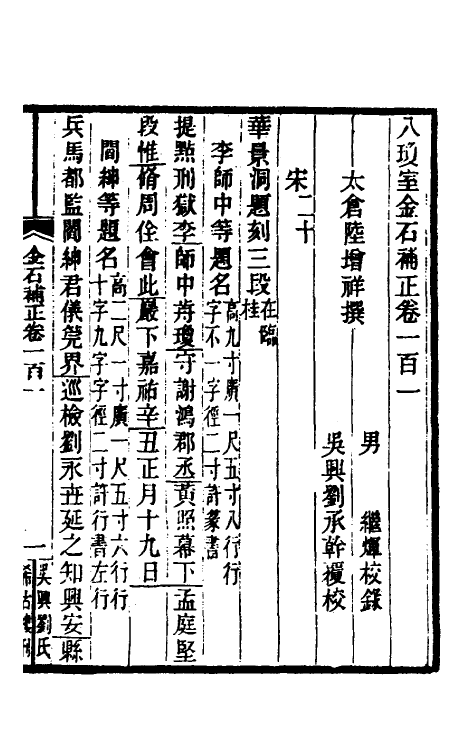 八瓊室金石補正卷一百一
太倉陸增祥撰
男 繼煇校錄
吳興劉承幹覆校
宋二十
華景洞題刻三段 在臨桂
李師中等題名 高九寸廣一尺五寸八行行字不一字徑二寸許篆書
提點刑獄李師中 瓊守謝鴻郡丞黃照幕下孟庭堅
段惟脩周佺會此巖下嘉祐辛丑正月十九日
閻紳等題名 高二尺一寸廣一尺五寸六行行十字九字字徑二寸許行書左行
兵馬都監閻紳君儀筦界巡檢劉永 延之知興安縣
金石補正卷一百一
一
吳興劉氏
希古樓刊